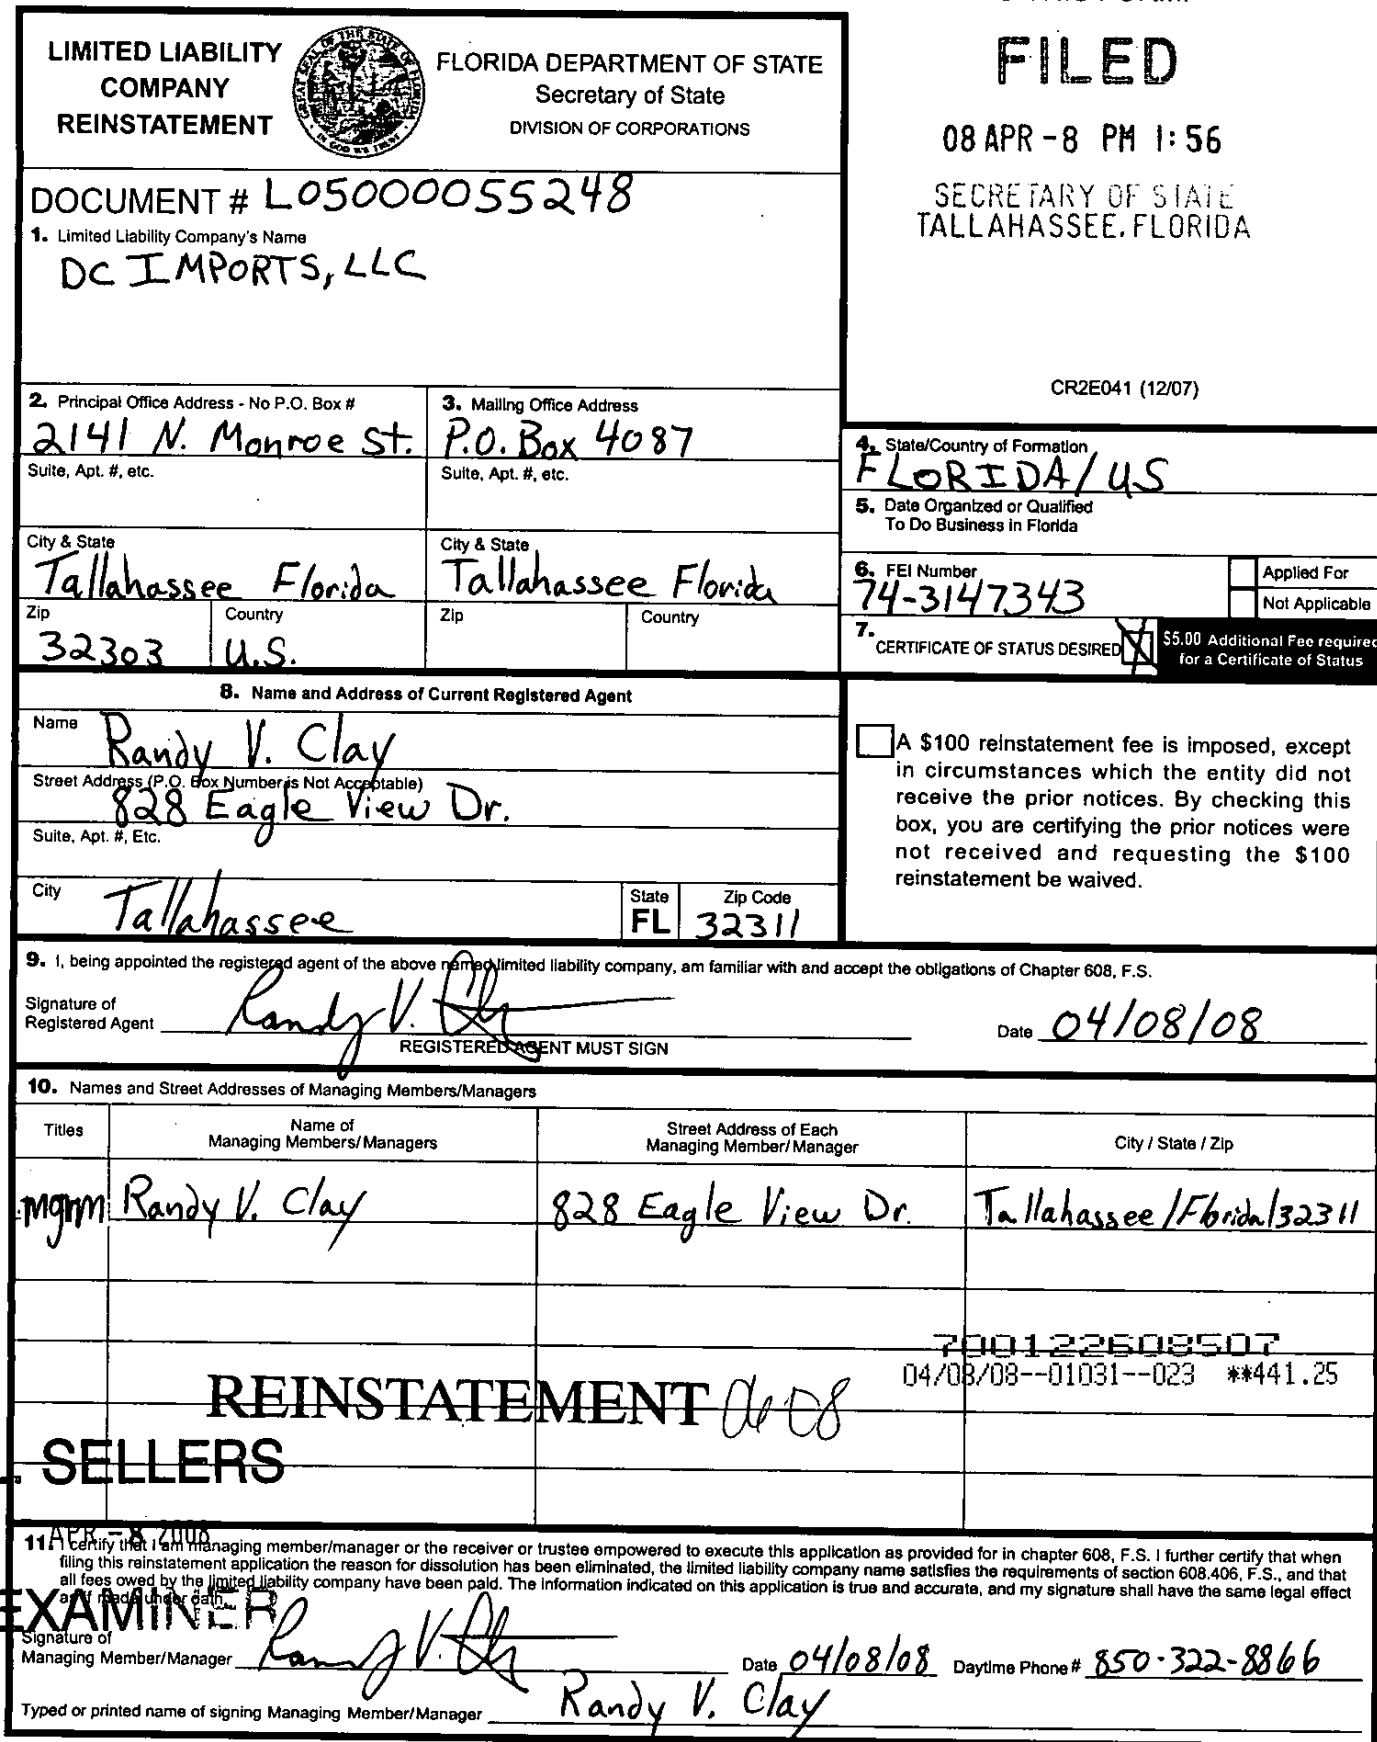 LIMITED LIABILITY
COMPANY
REINSTATEMENT
FLORIDA DEPARTMENT OF STATE
Secretary of State
DIVISION OF CORPORATIONS
FILED
08 APR -8 PM 1:56
SECRETARY OF STATE
TALLAHASSEE, FLORIDA
DOCUMENT # L05000055248
1. Limited Liability Company's Name
DC IMPORTS, LLC
CR2E041 (12/07)
2. Principal Office Address - No P.O. Box #
2141 N. Monroe St.
Suite, Apt. #, etc.
City & State
Tallahassee Florida
Zip
32303
Country
U.S.
3. Mailing Office Address
P.O. Box 4087
Suite, Apt. #, etc.
City & State
Tallahassee Florida
Zip
Country
4. State/Country of Formation
FLORIDA/US
5. Date Organized or Qualified
To Do Business in Florida
6. FEI Number
74-3147343
Applied For
Not Applicable
7. CERTIFICATE OF STATUS DESIRED
$5.00 Additional Fee required
for a Certificate of Status
8. Name and Address of Current Registered Agent
Name
Randy V. Clay
Street Address (P.O. Box Number is Not Acceptable)
828 Eagle View Dr.
Suite, Apt. #, Etc.
City
Tallahassee
State
FL
Zip Code
32311
A $100 reinstatement fee is imposed, except
in circumstances which the entity did not
receive the prior notices. By checking this
box, you are certifying the prior notices were
not received and requesting the $100
reinstatement be waived.
9. I, being appointed the registered agent of the above named limited liability company, am familiar with and accept the obligations of Chapter 608, F.S.
Signature of
Registered Agent
Randy V.
REGISTERED AGENT MUST SIGN
Date 04/08/08
10. Names and Street Addresses of Managing Members/Managers
Titles
Name of
Managing Members/Managers
Street Address of Each
Managing Member/Manager
City / State / Zip
mgrm Randy V. Clay 828 Eagle View Dr. Tallahassee/Florida/32311
700122608507
04/08/08--01031--023 **441.25
REINSTATEMENT
SELLERS
APR - 8 2008
EXAMINER
11. I certify that I am managing member/manager or the receiver or trustee empowered to execute this application as provided for in chapter 608, F.S. I further certify that when
filing this reinstatement application the reason for dissolution has been eliminated, the limited liability company name satisfies the requirements of section 608.406, F.S., and that
all fees owed by the limited liability company have been paid. The information indicated on this application is true and accurate, and my signature shall have the same legal effect
as if made under oath.
Signature of
Managing Member/Manager
Randy V.
Date 04/08/08 Daytime Phone # 850-322-8866
Typed or printed name of signing Managing Member/Manager Randy V. Clay